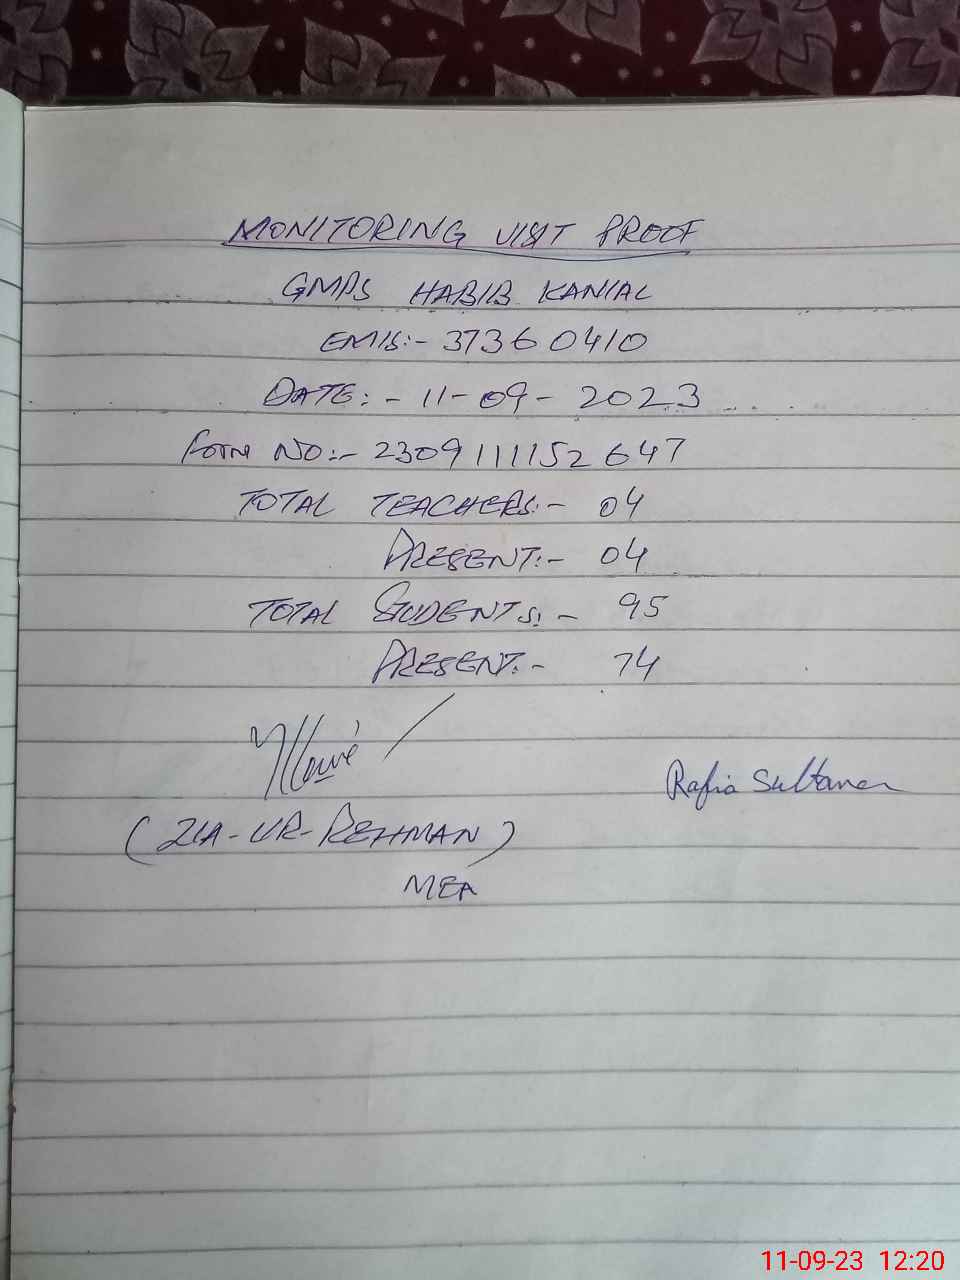 MONITORING VISIT PROOF
GMPS HABIB KANIAL
EMIS:- 37360410
DATE:- 11-09-2023
FORM NO:- 2309111152647
TOTAL TEACHERS:- 04
PRESENT:- 04
TOTAL STUDENTS:- 95
PRESENT:- 74
Rafia Sultana
(ZIA-UR-REHMAN)
MEA
11-09-23 12:20